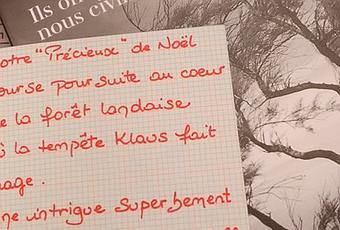 Ils on
nous civi
otre "Précieux" de Noël
ourse poursuite au coeur
e la forêt landaise
ù la tempête Klaus fait
age.
ne intrigue superbement